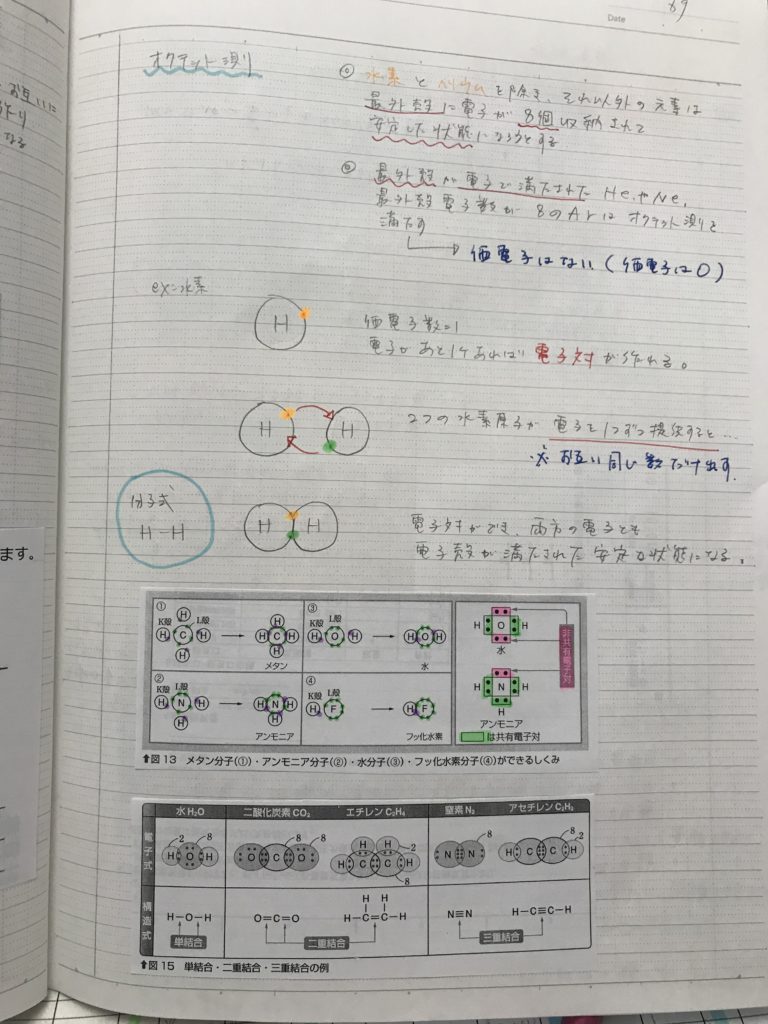 Date
オクテット測り
◎ 水素とヘリウムを除き、それ以外の元素は
最外殻に電子が8個収納されて
安定した状態になろうとする
◎ 最外殻が電子で満たされたHeやNe,
最外殻電子数が8のArはオクテット測りを
満たす
価電子はない(価電子は0)
ex=水素
H
価電子数=1
電子があと1ケあれば電子対が作れる。
H H
2つの水素原子が電子を1つずつ提供すると…
※お互い同じ数だけ出す.
分子式
H-H
H H
電子対ができ、両方の電子とも
電子殻が満たされた安定な状態になる。
ます。
①
K殻 L殻
H C H H H
メタン
③
K殻 L殻
H O H
水
②
K殻 L殻
H N H H
アンモニア
④
K殻 L殻
H F
フッ化水素
H O H
水
H N H
H
アンモニア
非共有電子対
は共有電子対
⬆図13 メタン分子(①)・アンモニア分子(②)・水分子(③)・フッ化水素分子(④)ができるしくみ
水H₂O 二酸化炭素CO₂ エチレンC₂H₄ 窒素N₂ アセチレンC₂H₂
電子式
2 8
H O H
8
O C O
H H 2
H C C H
8
N N 8
H C C H
8 2
構造式
H-O-H
単結合
O=C=O
H H
H-C=C-H
二重結合
N≡N
H-C≡C-H
三重結合
⬆図15 単結合・二重結合・三重結合の例